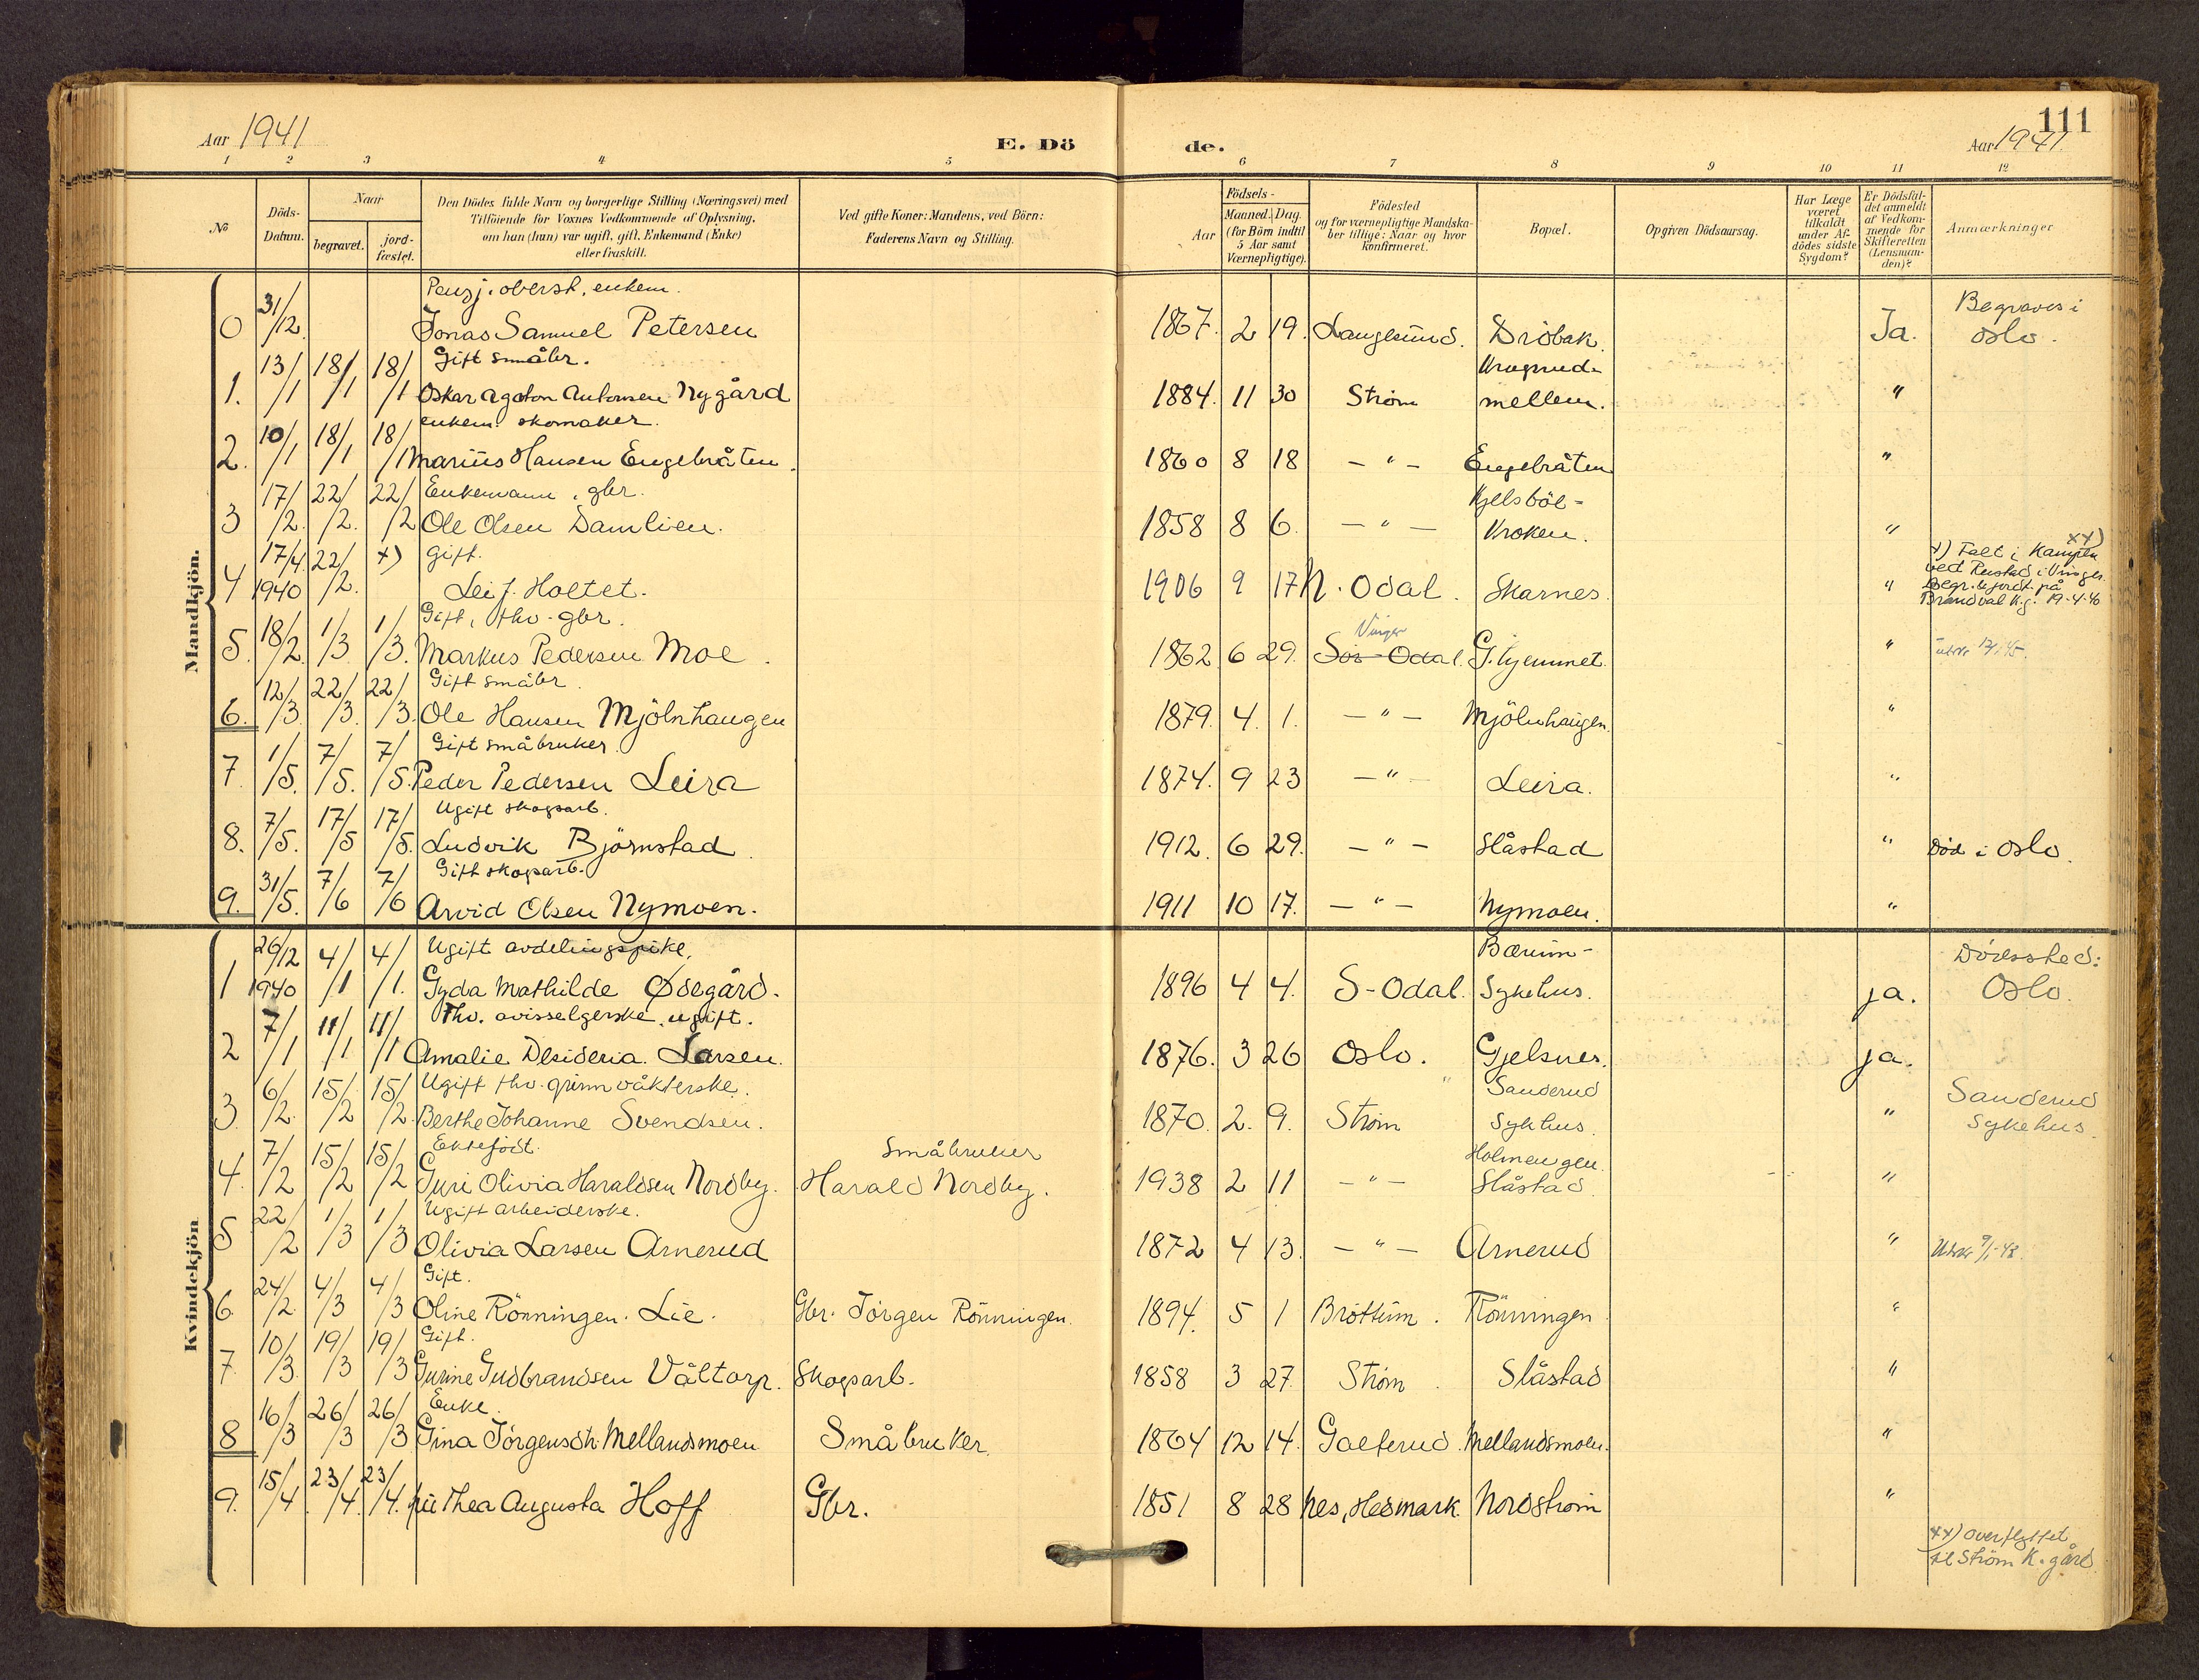 111
Aar 1941
E. Dö
de.
Aar 1941.
1 2 3 4 5 6 7 8 9 10 11 12
No
Döds-
Datum.
Naar
begravet.
jord-
fæstet.
Den Dödes fulde Navn og borgerlige Stilling (Næringsvei) med
Tilföiende for Voxnes Vedkommende af Oplysning,
om han (hun) var ugift, gift, Enkemand (Enke)
eller fraskilt.
Ved gifte Koner: Mandens, ved Börn:
Faderens Navn og Stilling.
Födsels-
Aar
Maaned. Dag.
(for Börn indtil
5 Aar samt
Værnepligtige).
Födested
og for værnepligtige Mandska-
ber tillige: Naar og hvor
konfirmeret.
Bopæl.
Opgiven Dödsaarsag.
Har Læge
været
tilkaldt
under Af-
dödes sidste
Sygdom?
Er Dödsfal-
det anmeldt
af Vedkom-
mende for
Skifteretten
(Lensman-
den)?
Anmærkninger
Mandkjön.
Pensj. oberst, enkem. Begraves i
0 31/12. Jonas Samuel Petersen 1867. 2 19. Langesund. Dröbak. Ja. Oslo.
Gift småbr.
1. 13/1 18/1 18/1 Oskar Agaton Antonsen Nygård 1884. 11 30 Ström mellem. "
enkem. skomaker.
2. 10/1 18/1 18/1 Marius Hansen Engebråten. 1860 8 18 - " - Engebråten "
Enkemann, gbr. Kjelsböl-
3 17/2. 22/2. 22/2 Ole Olsen Damlien. 1858 8 6. - " - Kroken. "
gift. xx)
x) Falt i Kampen
ved Rustad i Vinger.
4 17/4 1940 22/2. x) Leif Holtet. 1906 9 17 N. Odal. Skarnes. "
Brandval K.g. 19-4-40
Gift, fhv. gbr. Vinger
5. 18/2. 1/3 1/3. Markus Pedersen Moe. 1862 6 29. Sör-Odal. G. hjemmet. "
Gift småbr.
6. 12/3. 22/3. 22/3. Ole Hansen Mjölnhaugen 1879. 4. 1. - " - Mjölnhaugen. "
Gift småbruker.
7. 1/5. 7/5. 7/5. Peder Pedersen Leira 1874. 9 23 - " - Leira. "
Ugift skogsarb.
8. 7/5. 17/5 17/5. Ludvik Björnstad. 1912. 6 29. - " - Slåstad " Död i Oslo.
Gift skogsarb.
9. 31/5. 7/6 7/6 Arvid Olsen Nymoen. 1911 10 17. - " - Nymoen. "
Kvindekjön
Ugift avdelingspike. Bærum- Dödssted:
1 26/12 1940 4/1 4/1. Gyda Mathilde Ødegård. 1896 4 4. S-Odal. Sykehus. ja. Oslo.
Fhv. avisselgerske, ugift.
2 7/1 11/1 11/1 Amalie Desideria Larsen. 1876. 3 26 Oslo. Gjelsnes. ja.
Ugift fhv. grinnvåkterske. Sanderud Sanderud
3. 6/2. 15/2 15/2. Berthe Johanne Svendsen. 1870. 2. 9. Ström Sykhus. " Sykehus.
Ektefödt. Småbruker Holmengen.
4. 7/2 15/2 15/2 Guri Olivia Haraldsen Nordby. Harald Nordby. 1938 2 11 - " - Slåstad. "
Ugift arbeiderske.
5 22/2 1/3 1/3 Olivia Larsen Arnerud 1872 4 13. - " - Arnerud " Utskr 9/1-43.
Gift.
6. 24/2. 4/3 4/3 Oline Rönningen. Lie. Gbr. Jörgen Rönningen. 1894. 5 1 Bröttum. Rönningen "
Gift.
7. 10/3. 19/3 19/3 Gurine Gudbrandsen Våltorp. Skogsarb. 1858 3 27. Ström. Slåstad "
Enke.
8 16/3 26/3 26/3 Gina Jörgensdtr. Mellandsmoen Småbruker. 1864 12 14. Galterud. Mellandsmoen. "
9. 15/4 23/4. 23/4. fru Thea Augusta Hoff Gbr. 1851 8 28 Nes, Hedmark. Nordström "
xx) Overflyttet
til Ström K. gård.